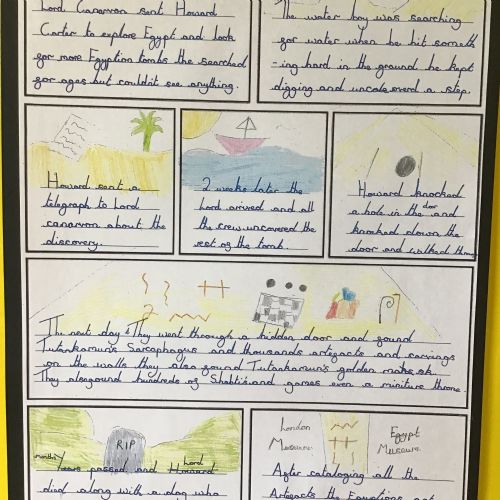 Lord Canarvon sent Howard
Carter to explore Egypt and look
for more Egyption tombs the searched
for ages but couldn't see anything.
The water boy was searching
for water when he hit someth
-ing hard in the ground he kept
digging and uncoverd a step.
Howard sent a
telegraph to Lord
canarvon about the
discovery.
2 weeks later the
Lord arrived and all
the crew uncovered the
rest of the tomb.
Howard knocked
a hole in the door and
knocked down the
door and walked throu
The next day They went through a hidden door and found
Tutankamun's Sarcophagus and thousands artefacts and carvings
on the walls they also found Tutankamun's golden mask
They alsofound hundreds of Shabti's and games even a miniture throne.
RIP
months
Years passed and Lord Howard
died along with a dog who
London
Museum
Egypt
Museum
After cataloging all the
Artefacts the Egyptians and